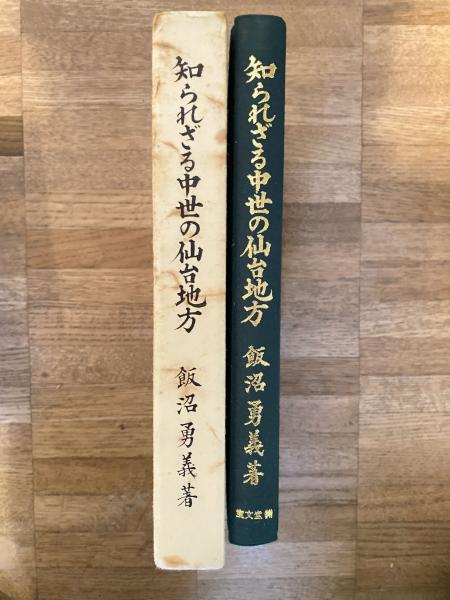 知られざる中世の仙台地方
飯沼勇義著
知られざる中世の仙台地方
飯沼勇義著
宝文堂